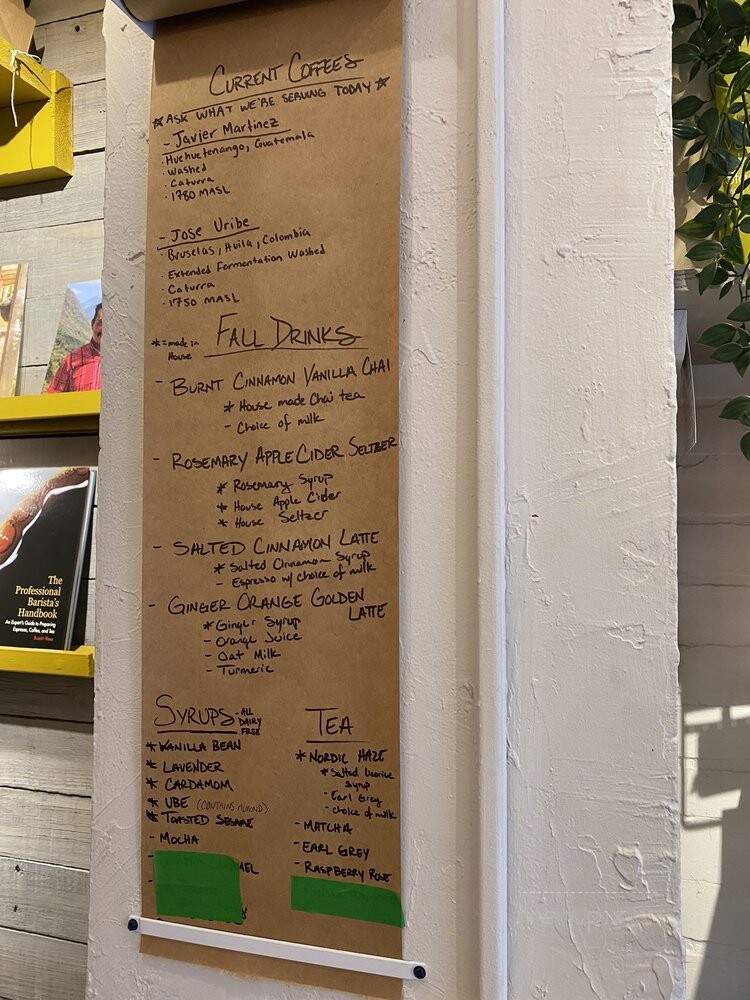 CURRENT COFFEES
*ASK WHAT WE'RE SERVING TODAY*
- Javier Martinez
· Huehuetenango, Guatemala
· Washed
· Caturra
· 1780 MASL
- Jose Uribe
· Bruselas, Huila, Colombia
· Extended Fermentation Washed
· Caturra
· 1750 MASL
* = made in House
FALL DRINKS
- BURNT CINNAMON VANILLA CHAI
* House made Chai tea
- Choice of milk
- ROSEMARY APPLE CIDER SELTZER
* Rosemary Syrup
* House Apple Cider
* House Seltzer
- SALTED CINNAMON LATTE
* Salted Cinnamon Syrup
- Espresso w/ choice of milk
- GINGER ORANGE GOLDEN
LATTE
* Ginger Syrup
- Orange Juice
- Oat Milk
- Turmeric
SYRUPS - ALL DAIRY FREE
* VANILLA BEAN
* LAVENDER
* CARDAMOM
* UBE (CONTAINS ALMOND)
* TOASTED SESAME
- MOCHA
TEA
* NORDIC HAZE
* Salted licorice
Syrup
- Earl Grey
- choice of milk
- MATCHA
- EARL GREY
- RASPBERRY ROSE
The
Professional
Barista's
Handbook
An Expert's Guide to Preparing
Espresso, Coffee, and Tea
Scott Rao